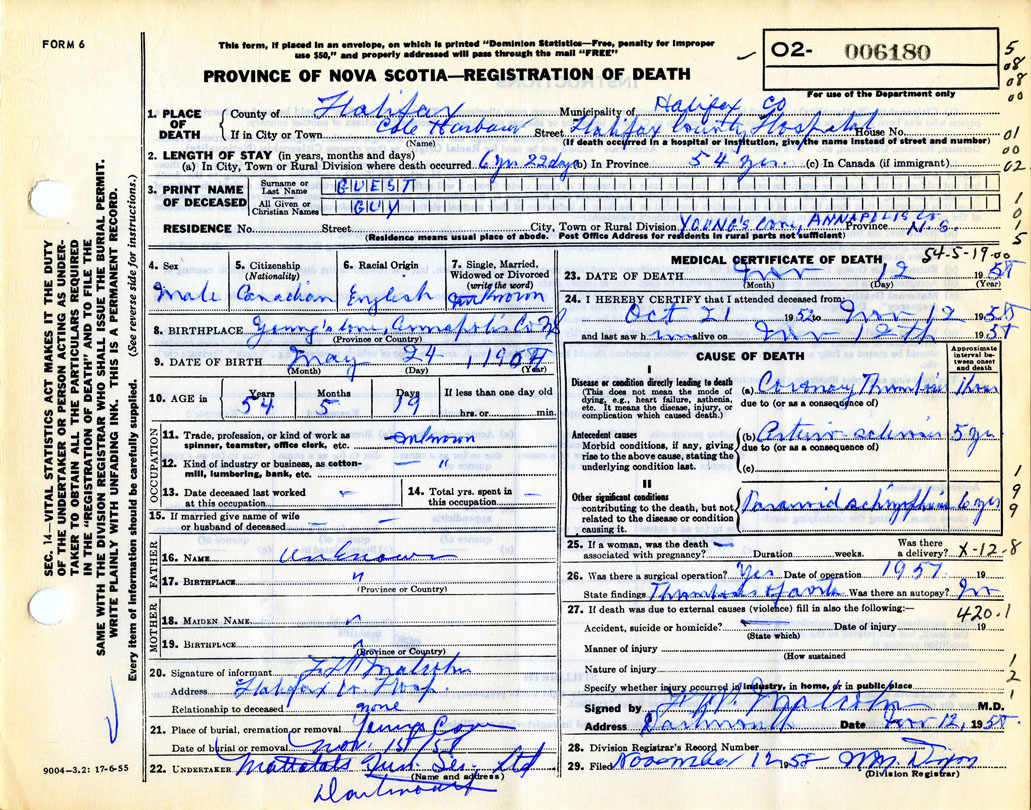 FORM 6
This form, if placed in an envelope, on which is printed "Dominion Statistics—Free, penalty for improper
use $50," and properly addressed will pass through the mail "FREE"
O2- 006180
For use of the Department only
PROVINCE OF NOVA SCOTIA—REGISTRATION OF DEATH
5
08
08
00
01
00
02
1
0
1
5
1. PLACE OF DEATH
County of Halifax Municipality of Halifax Co
If in City or Town Cole Harbour Street Halifax County Hospital House No.
(Name) (If death occurred in a hospital or institution, give the name instead of street and number)
2. LENGTH OF STAY (in years, months and days)
(a) In City, Town or Rural Division where death occurred 6 yrs 22 days (b) In Province 54 yrs. (c) In Canada (if immigrant)
3. PRINT NAME OF DECEASED
Surname or Last Name GUEST
All Given or Christian Names GUY
RESIDENCE No. Street City, Town or Rural Division YOUNG'S Cove, ANNAPOLIS Co Province N.S.
(Residence means usual place of abode. Post Office Address for residents in rural parts not sufficient)
4. Sex
Male
5. Citizenship
(Nationality)
Canadian
6. Racial Origin
English
7. Single, Married,
Widowed or Divorced
(write the word)
unknown
8. BIRTHPLACE Young's Cove, Annapolis Co NS
(Province or Country)
9. DATE OF BIRTH May 24, 1904
(Month) (Day) (Year)
10. AGE in
Years 54
Months 5
Days 19
If less than one day old
hrs. or min.
OCCUPATION
11. Trade, profession, or kind of work as
spinner, teamster, office clerk, etc. unknown
12. Kind of industry or business, as cotton-
mill, lumbering, bank, etc. — "
13. Date deceased last worked
at this occupation —
14. Total yrs. spent in
this occupation —
15. If married give name of wife
or husband of deceased — —
FATHER
16. NAME unknown
17. BIRTHPLACE "
(Province or Country)
MOTHER
18. MAIDEN NAME "
19. BIRTHPLACE "
(Province or Country)
20. Signature of informant Malcolm
Address Halifax Co. Hosp.
Relationship to deceased none
21. Place of burial, cremation or removal Youngs Cove
Date of burial or removal Nov. 15/58
22. UNDERTAKER Ltd
(Name and address)
Dartmouth
MEDICAL CERTIFICATE OF DEATH
54-5-19.00
23. DATE OF DEATH Nov 12 1958
(Month) (Day) (Year)
24. I HEREBY CERTIFY that I attended deceased from
Oct 21 1952 to Nov 12 1958
and last saw him alive on Nov 12th 1958
CAUSE OF DEATH
Approximate interval between onset and death
I
Disease or condition directly leading to death
(This does not mean the mode of
dying, e.g., heart failure, asthenia,
etc. It means the disease, injury, or
complication which caused death.)
(a) Coronary Thrombosis 1 hour
due to (or as a consequence of)
Antecedent causes
Morbid conditions, if any, giving
rise to the above cause, stating the
underlying condition last.
(b) Arterio sclerosis 5 yrs
due to (or as a consequence of)
(c)
II
Other significant conditions
contributing to the death, but not
related to the disease or condition
causing it.
Paranoid schizophrenia 6 yrs
1
9
9
25. If a woman, was the death —
associated with pregnancy? Duration weeks. Was there a delivery? X-12-8
26. Was there a surgical operation? Yes Date of operation 1957 19
State findings Was there an autopsy? No
27. If death was due to external causes (violence) fill in also the following:—
420.1
Accident, suicide or homicide? Date of injury 19
(State which)
Manner of injury
(How sustained
Nature of injury
Specify whether injury occurred in industry, in home, or in public place
1
2
1
Signed by Malcolm M.D.
Address Dartmouth Date Nov 12, 1958
28. Division Registrar's Record Number
29. Filed November 12 1958
(Division Registrar)
SEC. 14—VITAL STATISTICS ACT MAKES IT THE DUTY
OF THE UNDERTAKER OR PERSON ACTING AS UNDER-
TAKER TO OBTAIN ALL THE PARTICULARS REQUIRED
IN THE "REGISTRATION OF DEATH" AND TO FILE THE
SAME WITH THE DIVISION REGISTRAR WHO SHALL ISSUE THE BURIAL PERMIT.
WRITE PLAINLY WITH UNFADING INK. THIS IS A PERMANENT RECORD.
Every item of information should be carefully supplied. (See reverse side for instructions.)
9004-3.2: 17-6-55